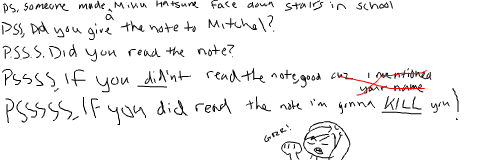 PS, someone made a Miku Hatsune face down stairs in school
PSS, Did you give the note to Mitchel?
P.S.S.S. Did you read the note?
PSSSS, If you didn't read the note, good cuz I mentioned
your name
PSSSSS, If you did read the note i'm gonna KILL you!
GRRR!